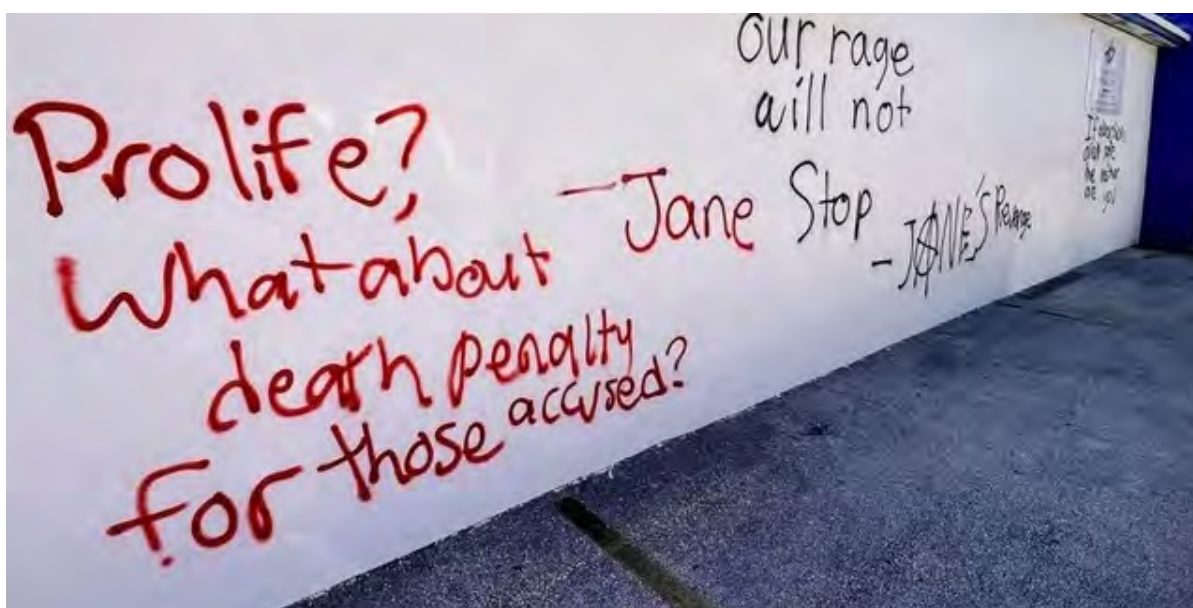 Prolife?
What about
death penalty
for those accused?
-Jane
our rage
will not
Stop
- JANE'S Revenge
If abortions
aint safe
neither
are you